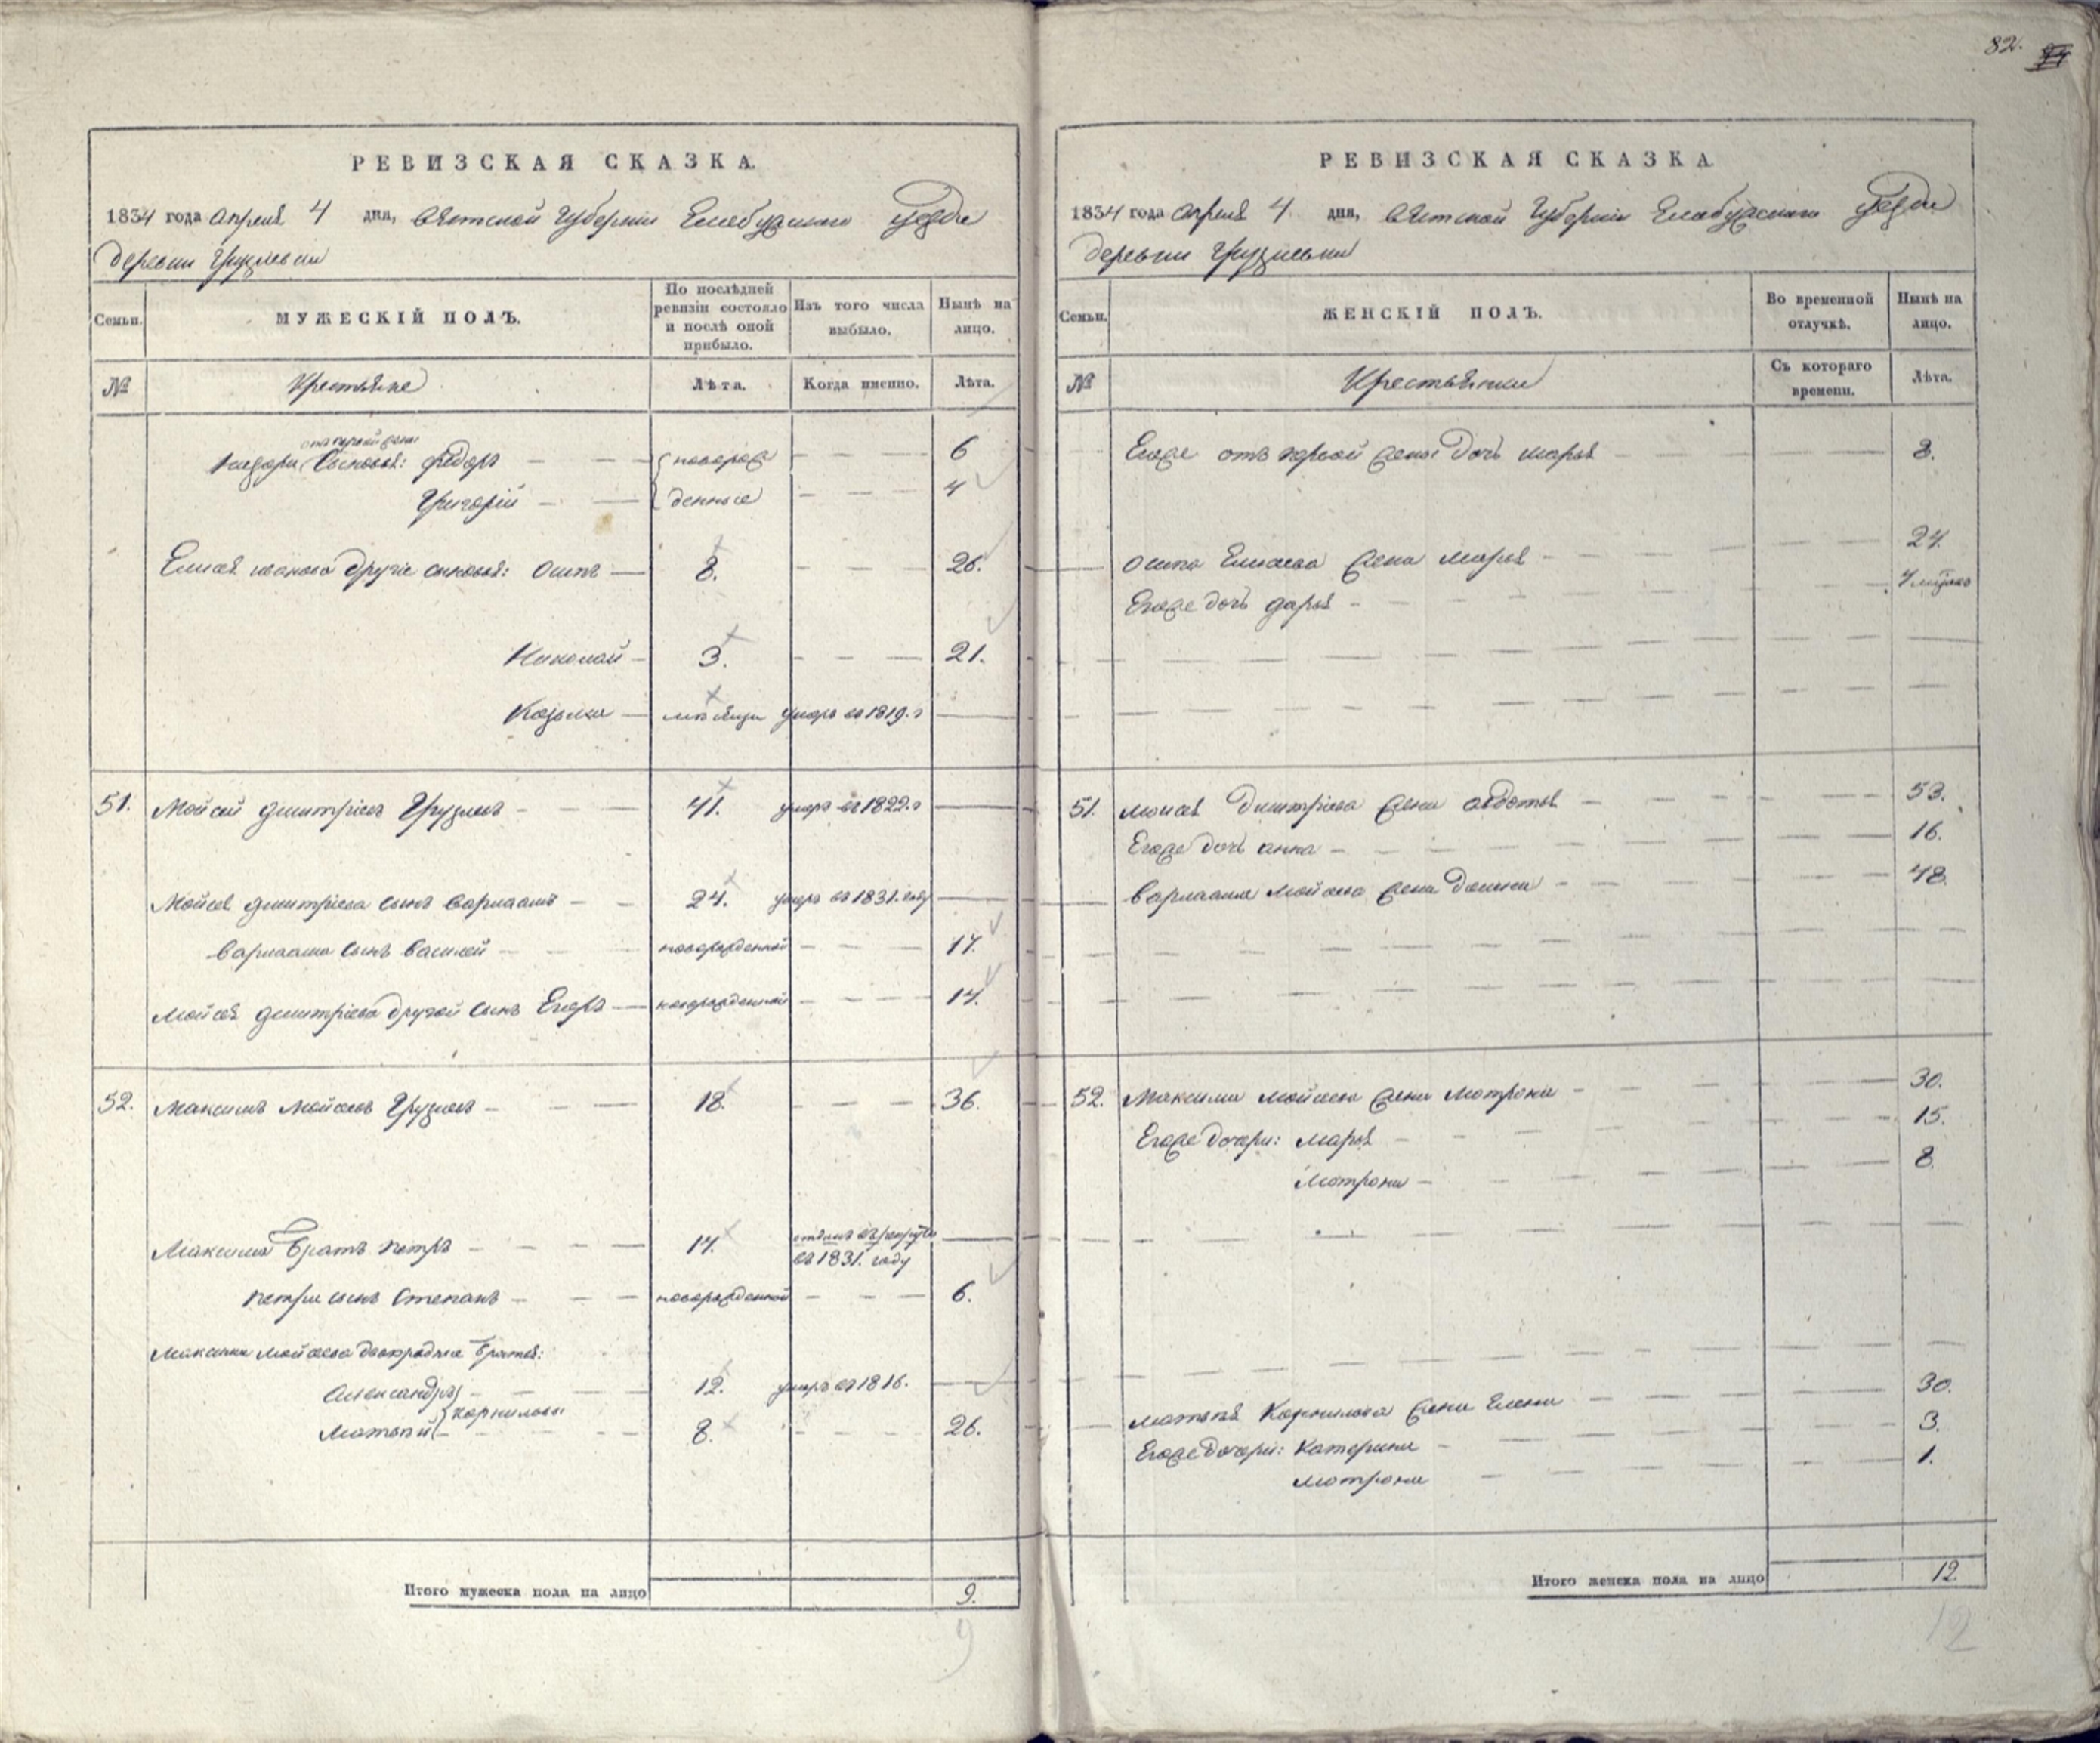 82.
РЕВИЗСКАЯ СКАЗКА.
1834 года апреля 4 дня, Вятской Губернии Елабужскаго уезда
деревни Грузлевки
Семьи.
МУЖЕСКІЙ ПОЛЪ.
По послѣдней ревизіи состояло и послѣ оной прибыло.
Изъ того числа выбыло.
Нынѣ на лицо.
№
Крестьяне
Лѣта.
Когда именно.
Лѣта.
от первой жены
Сыновья: Федоръ новорож 6
Григорій денные 4
Елисея иванова другіе сыновья: Осипъ 8. 26.
Николай 3. 21.
Козьма умеръ въ 1819. г
51. Мойсей дмитріевъ Грузлевъ 41. умеръ въ 1822. г
Мойсея дмитріева сынъ варлаамъ 24. умеръ въ 1831. году
варлаама сынъ василей новорожденной 17.
Мойсея дмитріева другой сынъ Егоръ новорожденной 14.
52. Максимъ Мойсеевъ Грузлевъ 18. 36.
Максима братъ петръ 17. отданъ въ рекруты
въ 1831. году
петра сынъ Степанъ новорожденной 6.
Максима Мойсеева двоюродные братья:
Александръ 12. умеръ въ 1816.
Корниловы
Матвѣй 8. 26.
Итого мужеска пола на лицо 9.
9
РЕВИЗСКАЯ СКАЗКА
1834 года апреля 4 дня, Вятской Губерніи Елабужскаго уезда
деревни Грузлевки
Семьи.
ЖЕНСКІЙ ПОЛЪ.
Во временной отлучкѣ.
Нынѣ на лицо.
№
Крестьянки
Съ котораго времени.
Лѣта.
Егоже отъ первой жены дочь марья 8.
осипа Елисеева жена марья 24.
Егоже дочь дарья
51. моисея дмитріева жена авдотья 53.
Егоже дочь анна 16.
варлаама Мойсеева жена 48.
52. Максима мойсеева жена Мотрона 30.
Егоже дочери: марья 15.
Мотрона 8.
матвѣя Корнилова жена Елена 30.
Егоже дочери: Катерина 3.
мотрона 1.
Итого женска пола на лицо 12.
12